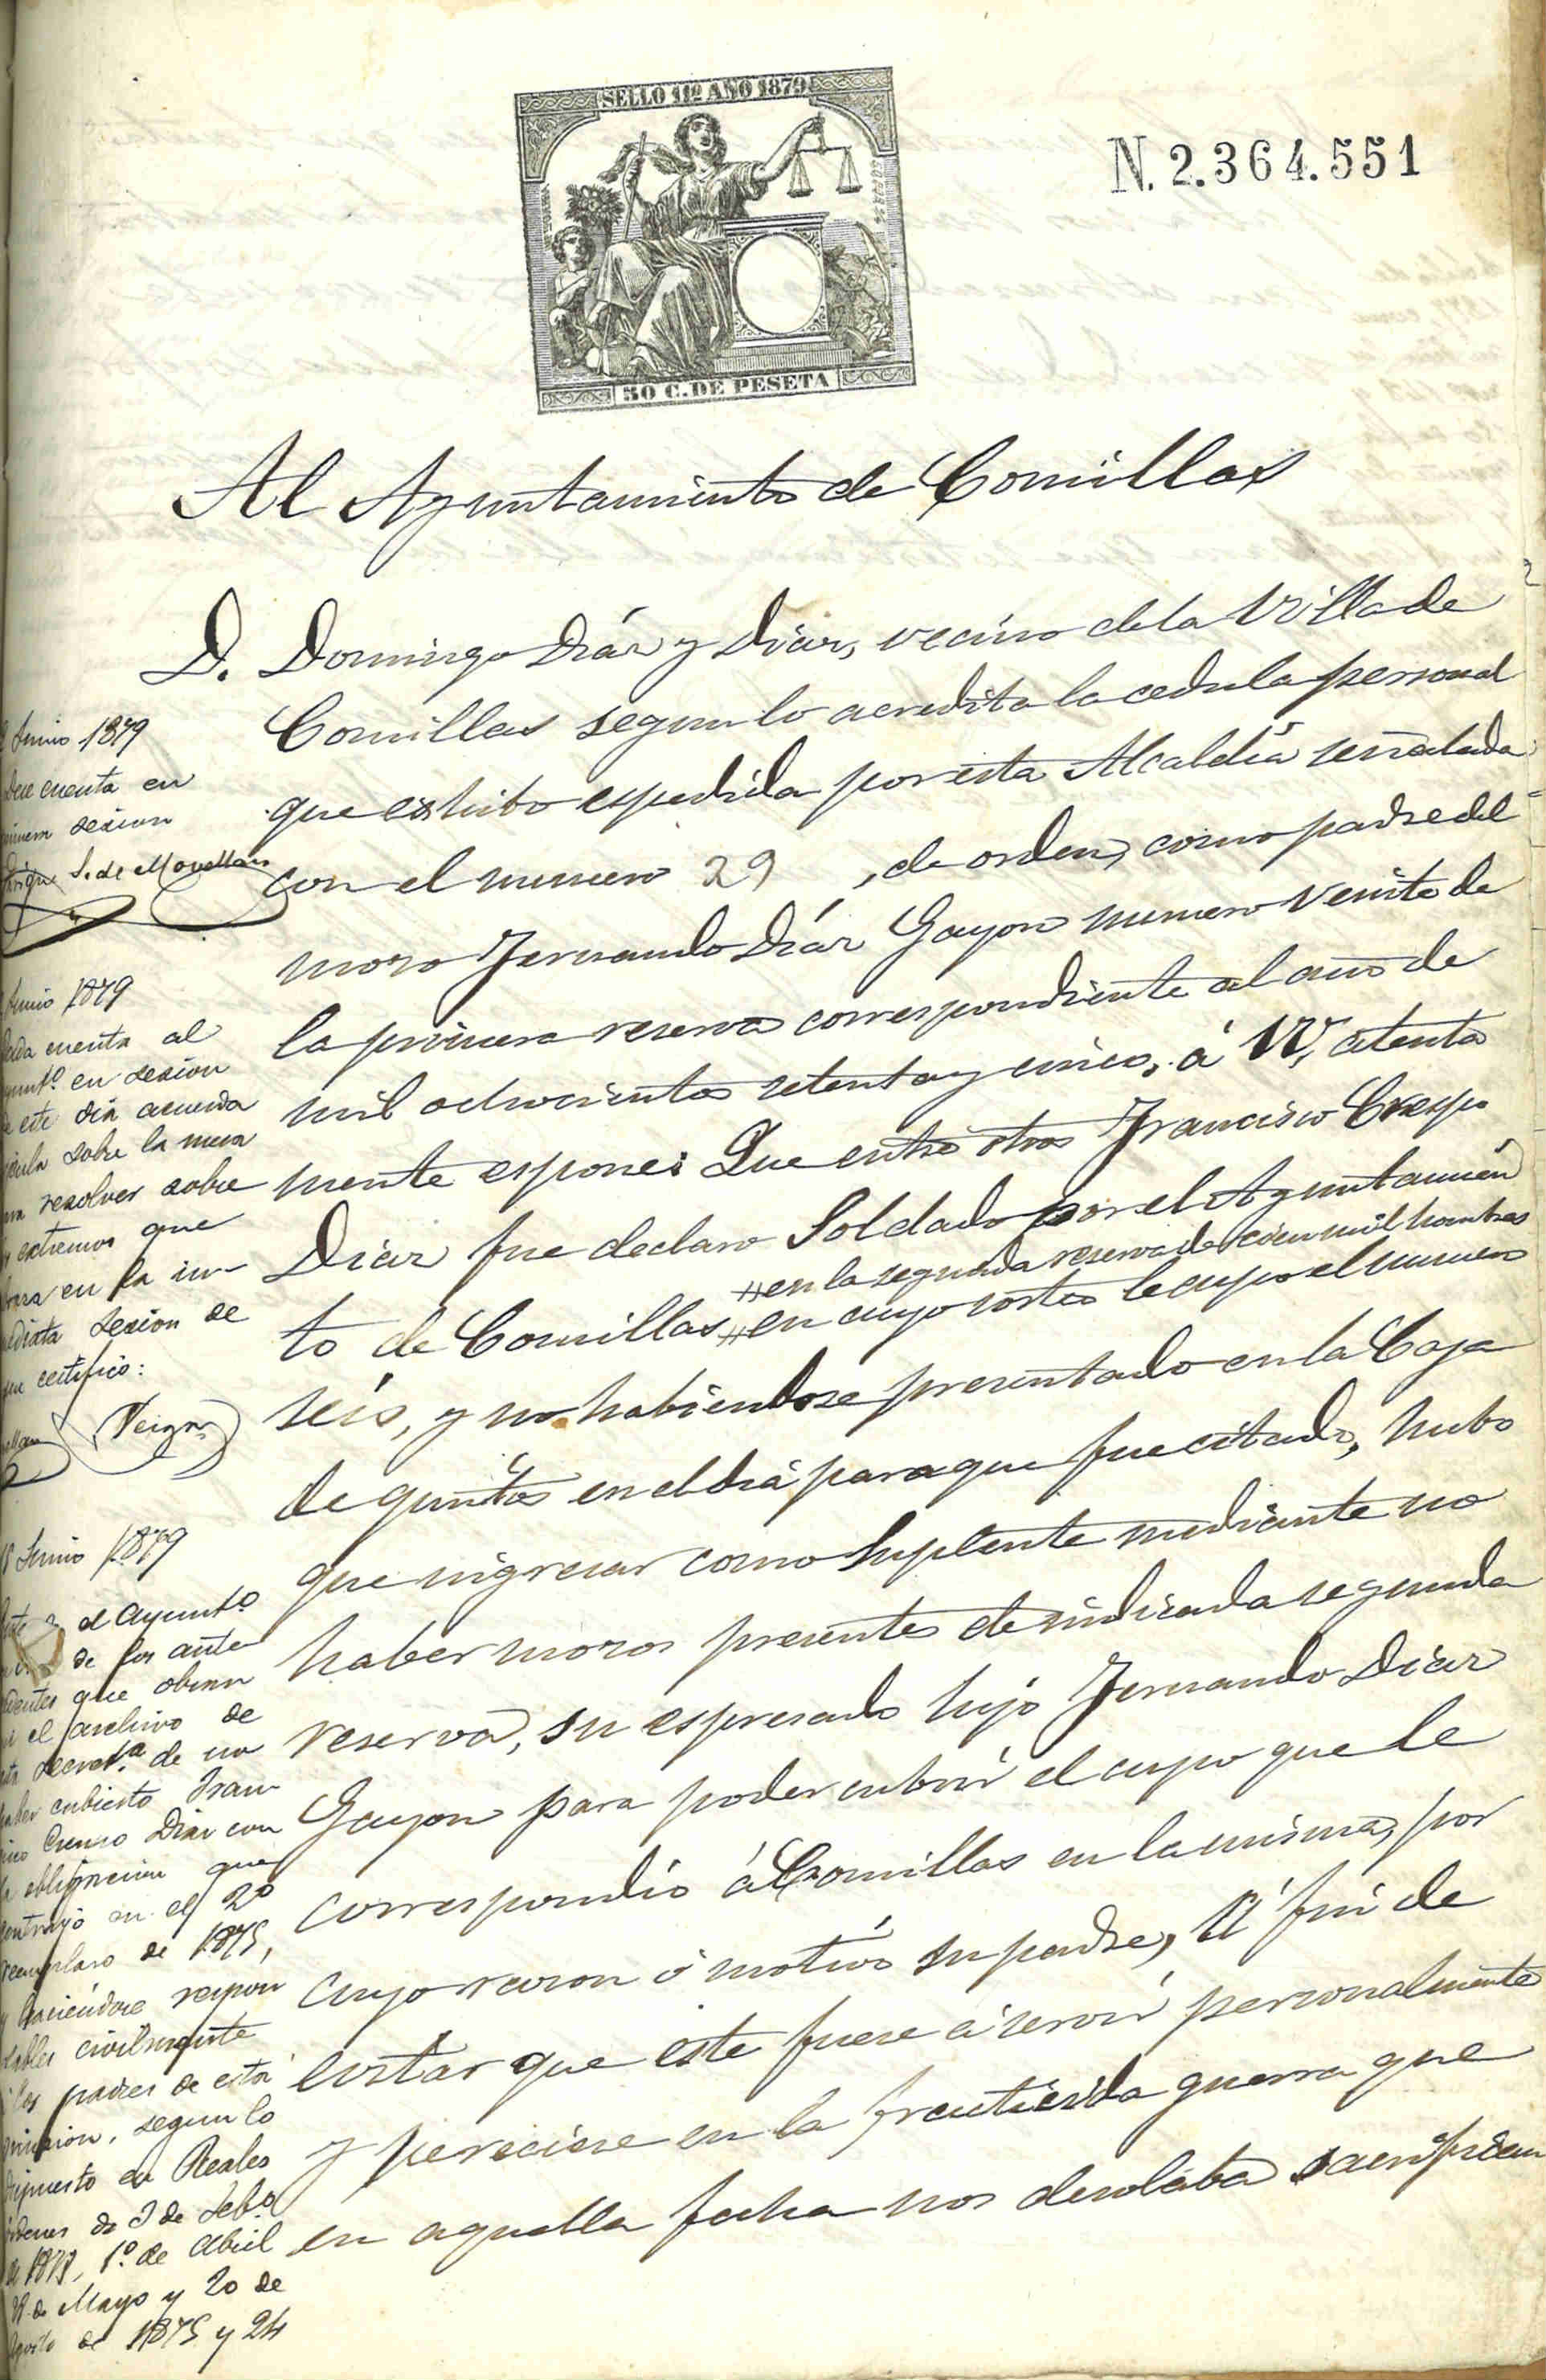 SELLO 11º AÑO 1879
50 C. DE PESETA
N. 2.364.551
Al Ayuntamiento de Comillas
D. Domingo Diáz y Diaz, vecino de la Villa de
Comillas segun lo acredita la cedula personal
que exhibo espedida por esta Alcaldía señalada
con el numero 29, de orden, como padre del
mozo Fernando Diáz Gayon numero veinte de
la primera reserva correspondiente al año de
mil ochocientos setenta y cinco, á V, atenta
mente espone: Que entre otros Francisco Crespo
Diaz fue declaro Soldado por el Ayuntamien
#en la segunda reserva de cien mil hombres
to de Comillas #en cuyo sorteo le cupo el numero
seis, y no habiendose presentado en la Caja
de quintos en el dia para que fue citado, hubo
que ingresar como Suplente mediante no
haber mozos presentes de indicada segunda
reserva, su espresado hijo Fernando Diaz
Gayon para poder cubrir el cupo que le
correspondió á Comillas en la misma, por
cuyo razon ó motivo su padre, á fin de
evitar que este fuere á servir personalmente
y pereciese en la fraticida guerra que
en aquella fecha nos desolaba sacrifican
Junio 1879
Dese cuenta en
sesion
S. de Movellan
Junio 1879
Dada cuenta al
Ayuntº en sesion
de este dia acuerda
sobre la mesa
para resolver sobre
extremos que
en la in
mediata sesion de
que certifico:
Veiga
18 Junio 1879
el Ayuntº
de los ante
cedentes que obran
en el archivo de
esta secretª de no
haber cubierto Fran
cisco Crespo Diaz con
la obligacion que
contrajo en el 2º
reemplazo de 1875,
y haciendose respon
sables civilmente
á los padres de esta
omision, segun lo
dispuesto en Reales
ordenes de 3 de Febº
de 1873, 1º de Abril
de Mayo y 20 de
Agosto de 1875 y 24